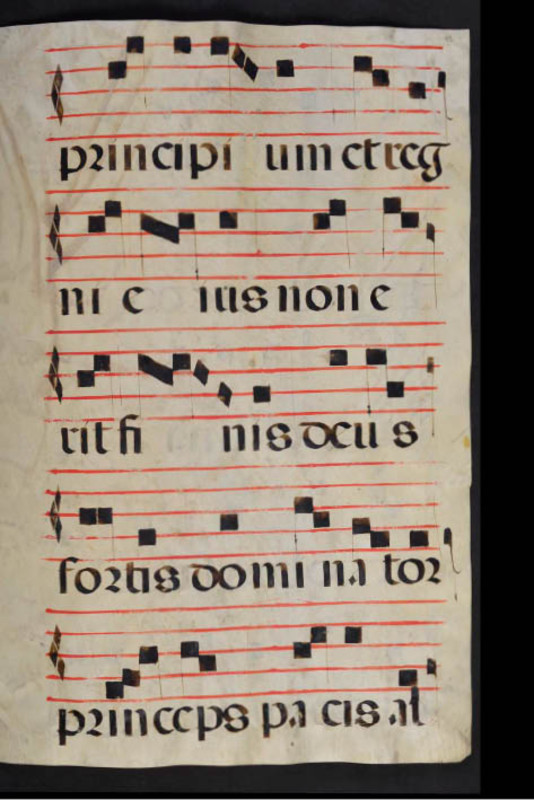 principi um et reg
ni e ius non e
rit fi nis deus
fortis domi na tor
princeps pa cis al